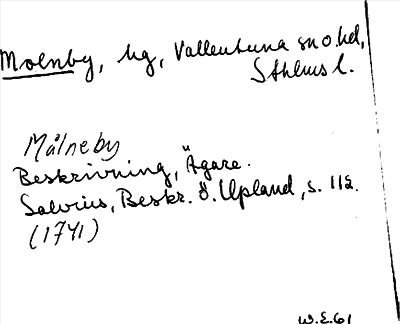 Molnby, hg, Vallentuna sn o. hd,
Sthlms l.
Målneby
Beskrivning, Ägare.
Salvius, Beskr. ö. Upland, s. 112.
(1741)
W.E.61